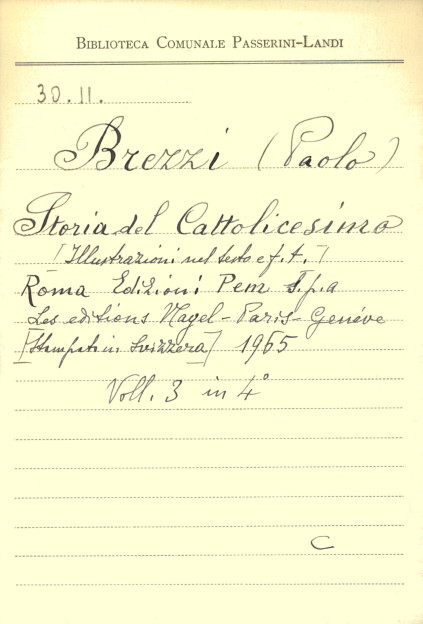 BIBLIOTECA COMUNALE PASSERINI-LANDI
30.11.
Brezzi (Paolo)
Storia del Cattolicesimo
(Illustrazioni nel testo e f. t.)
Roma Edizioni Pem S.p.a
Les editions Nagel-Paris-Genéve
[Stampato in Svizzera] 1965
Voll. 3 in 4°
C